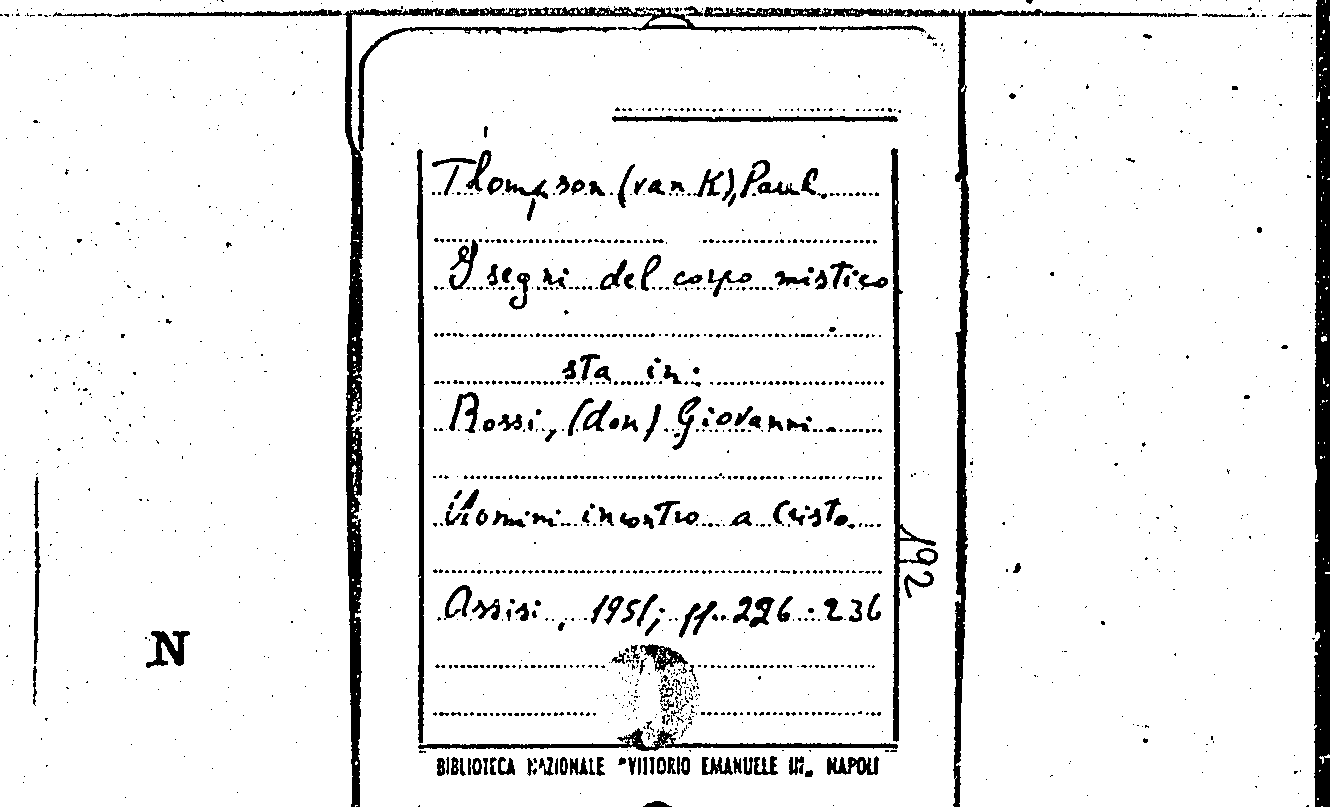 Thompson (van K), Paul.
I segni del corpo mistico
sta in:
Rossi, (don) Giovanni.
Uomini incontro a Cristo.
192
Assisi, 1951; pp. 226-236
N
BIBLIOTECA NAZIONALE "VITTORIO EMANUELE III„ NAPOLI